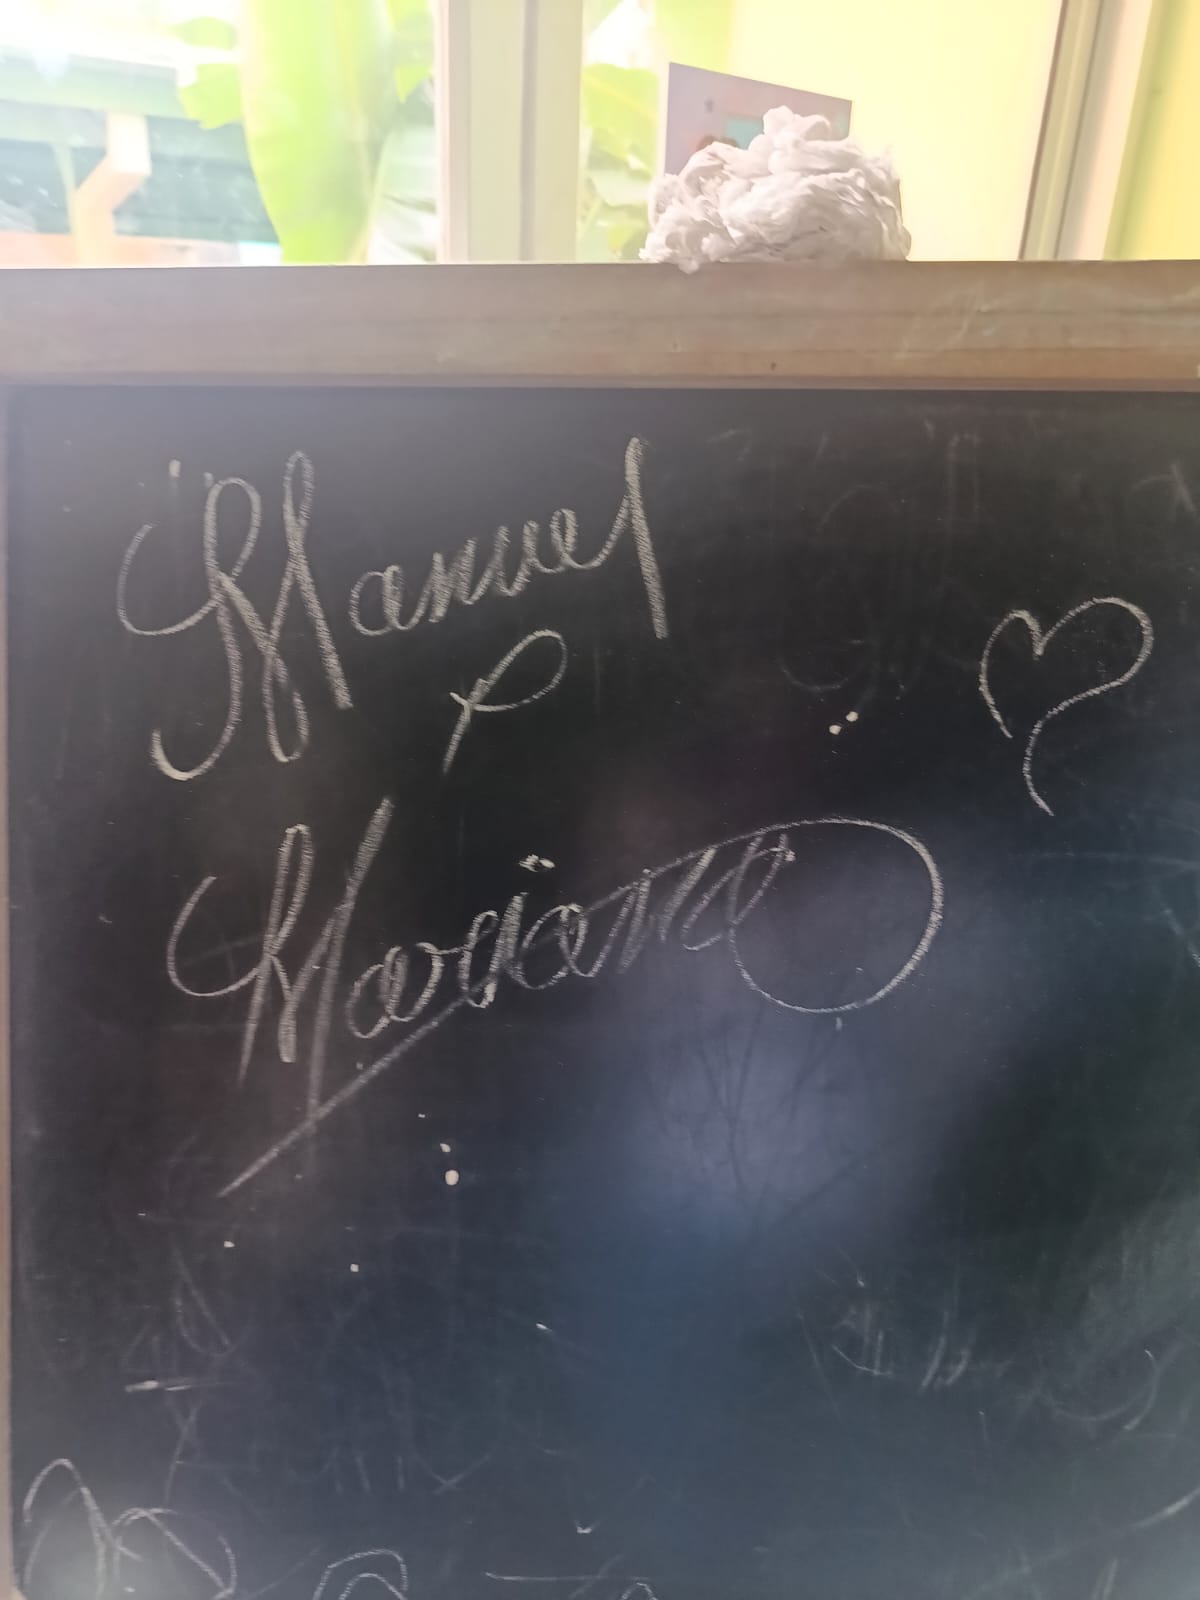 Manuel
Mariana